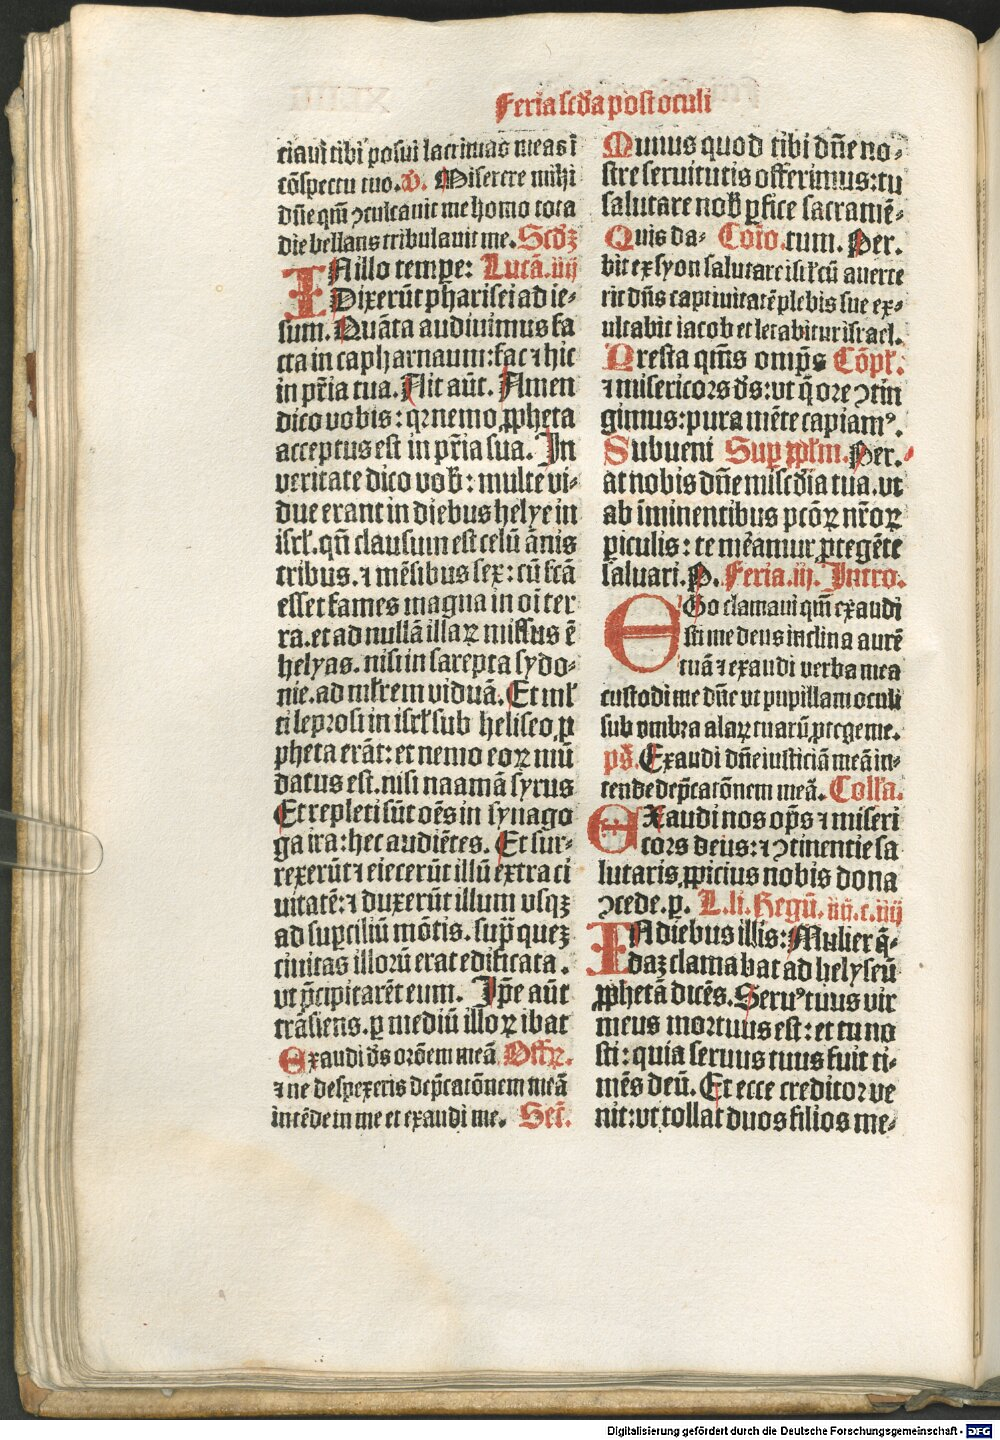 Feria scd̄a post oculi
ciaui tibi posui lacrimas meas ī
cōspectu tuo. v̄. Miserere mihi
dn̄e qm̄ ꝯculcauit me homo tota
die bellans tribulauit me. Scd̄ꝫ
IN illo tempe: Lucā. iiij
Dixerūt pharisei ad ie-
sum. Quāta audiuimus fa
cta in capharnaum: fac ⁊ hic
in pr̄ia tua. Ait aūt. Amen
dico vobis: qr nemo ꝓpheta
acceptus est in pr̄ia sua. In
veritate dico vob̄: multe vi-
due erant in diebus helye in
isrl̄. qn̄ clausum est celū ānis
tribus. ⁊ mēsibus sex: cū fcā
esset fames magna in oī ter
ra. et ad nullā illaꝝ missus ē
helyas. nisi in sarepta sydo-
nie. ad ml̄rem viduā. Et ml̄
ti leprosi in isrl̄ sub heliseo ꝓ
pheta erāt: et nemo eoꝝ mū
datus est. nisi naamā syrus
Et repleti sūt oēs in synago
ga ira: hec audiētes. Et sur-
rexerūt ⁊ eiecerūt illū extra ci
uitatē: ⁊ duxerūt illum vsqꝫ
ad supciliū mōtis. sup̄ quez
ciuitas illorū erat edificata.
vt p̄cipitarēt eum. Ip̄e aūt
trāsiens. ꝑ mediū illoꝝ ibat
Exaudi d̄s orōem meā Offꝝ.
⁊ ne despexeris dep̄catōnem meā
intēde in me et exaudi me. Sec̄.
Munus quod tibi dn̄e no-
stre seruitutis offerimus: tu
salutare nob̄ ꝑfice sacramē-
Quis da- Cōio. tum. Per.
bit ex syon salutare isrl̄ cū auerte
rit dn̄s captiuitatē plebis sue ex-
ultabit iacob et letabitur israel.
Presta qm̄s omp̄s Cōpl̄.
⁊ misericors d̄s: vt q̄ ore ꝯtin
gimus: pura mēte capiamꝰ.
Subueni Sup ppl̄m. Per.
at nobis dn̄e misc̄dia tua. vt
ab īminentibus pcōꝝ nr̄oꝝ
ꝑiculis: te mēamur ꝓtegēte
saluari. P. Feria. iij. Intro.
EGo clamaui qm̄ exaudi
sti me deus inclina aurē
tuā ⁊ exaudi verba mea
custodi me dn̄e vt pupillam oculi
sub vmbra alaꝝ tuarū ꝓtege me.
ps̄. Exaudi dn̄e iusticiā meā in-
tende dep̄catōnem meā. Coll̄a.
EXaudi nos op̄s ⁊ miseri
cors deus: ⁊ ꝯtinentie sa
lutaris ꝓpicius nobis dona
ꝯcede. p. L. li. Regū. iiij. c. iiij
IN diebus illis: Mulier q̄-
daꝫ clamabat ad helyseū
ꝓphetā dicēs. Seruꝰ tuus vir
meus mortuus est: et tu no
sti: quia seruus tuus fuit ti-
mēs deū. Et ecce creditor ve
nit: vt tollat duos filios me-
Digitalisierung gefördert durch die Deutsche Forschungsgemeinschaft - DFG